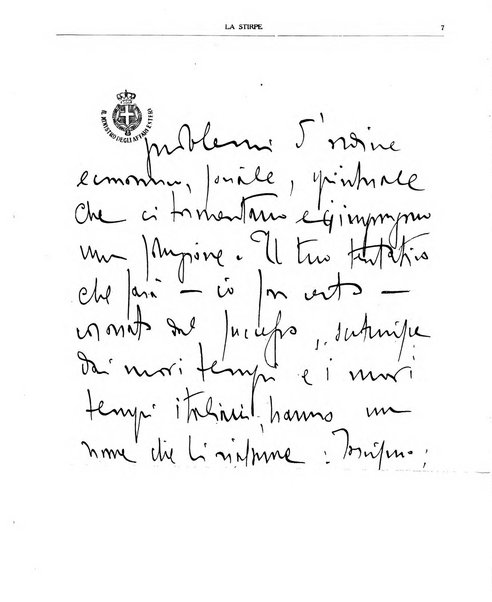 LA STIRPE 7
IL MINISTRO DEGLI AFFARI ESTERI
problemi d'ordine
economico, sociale, spirituale
che ci tormentano e ci impongono
una soluzione. Il tuo tentativo
che sarà — io son certo —
coronato dal successo, scaturisce
dai nuovi tempi e i nuovi
tempi italiani, hanno un
nome che li riassume : Fascismo;